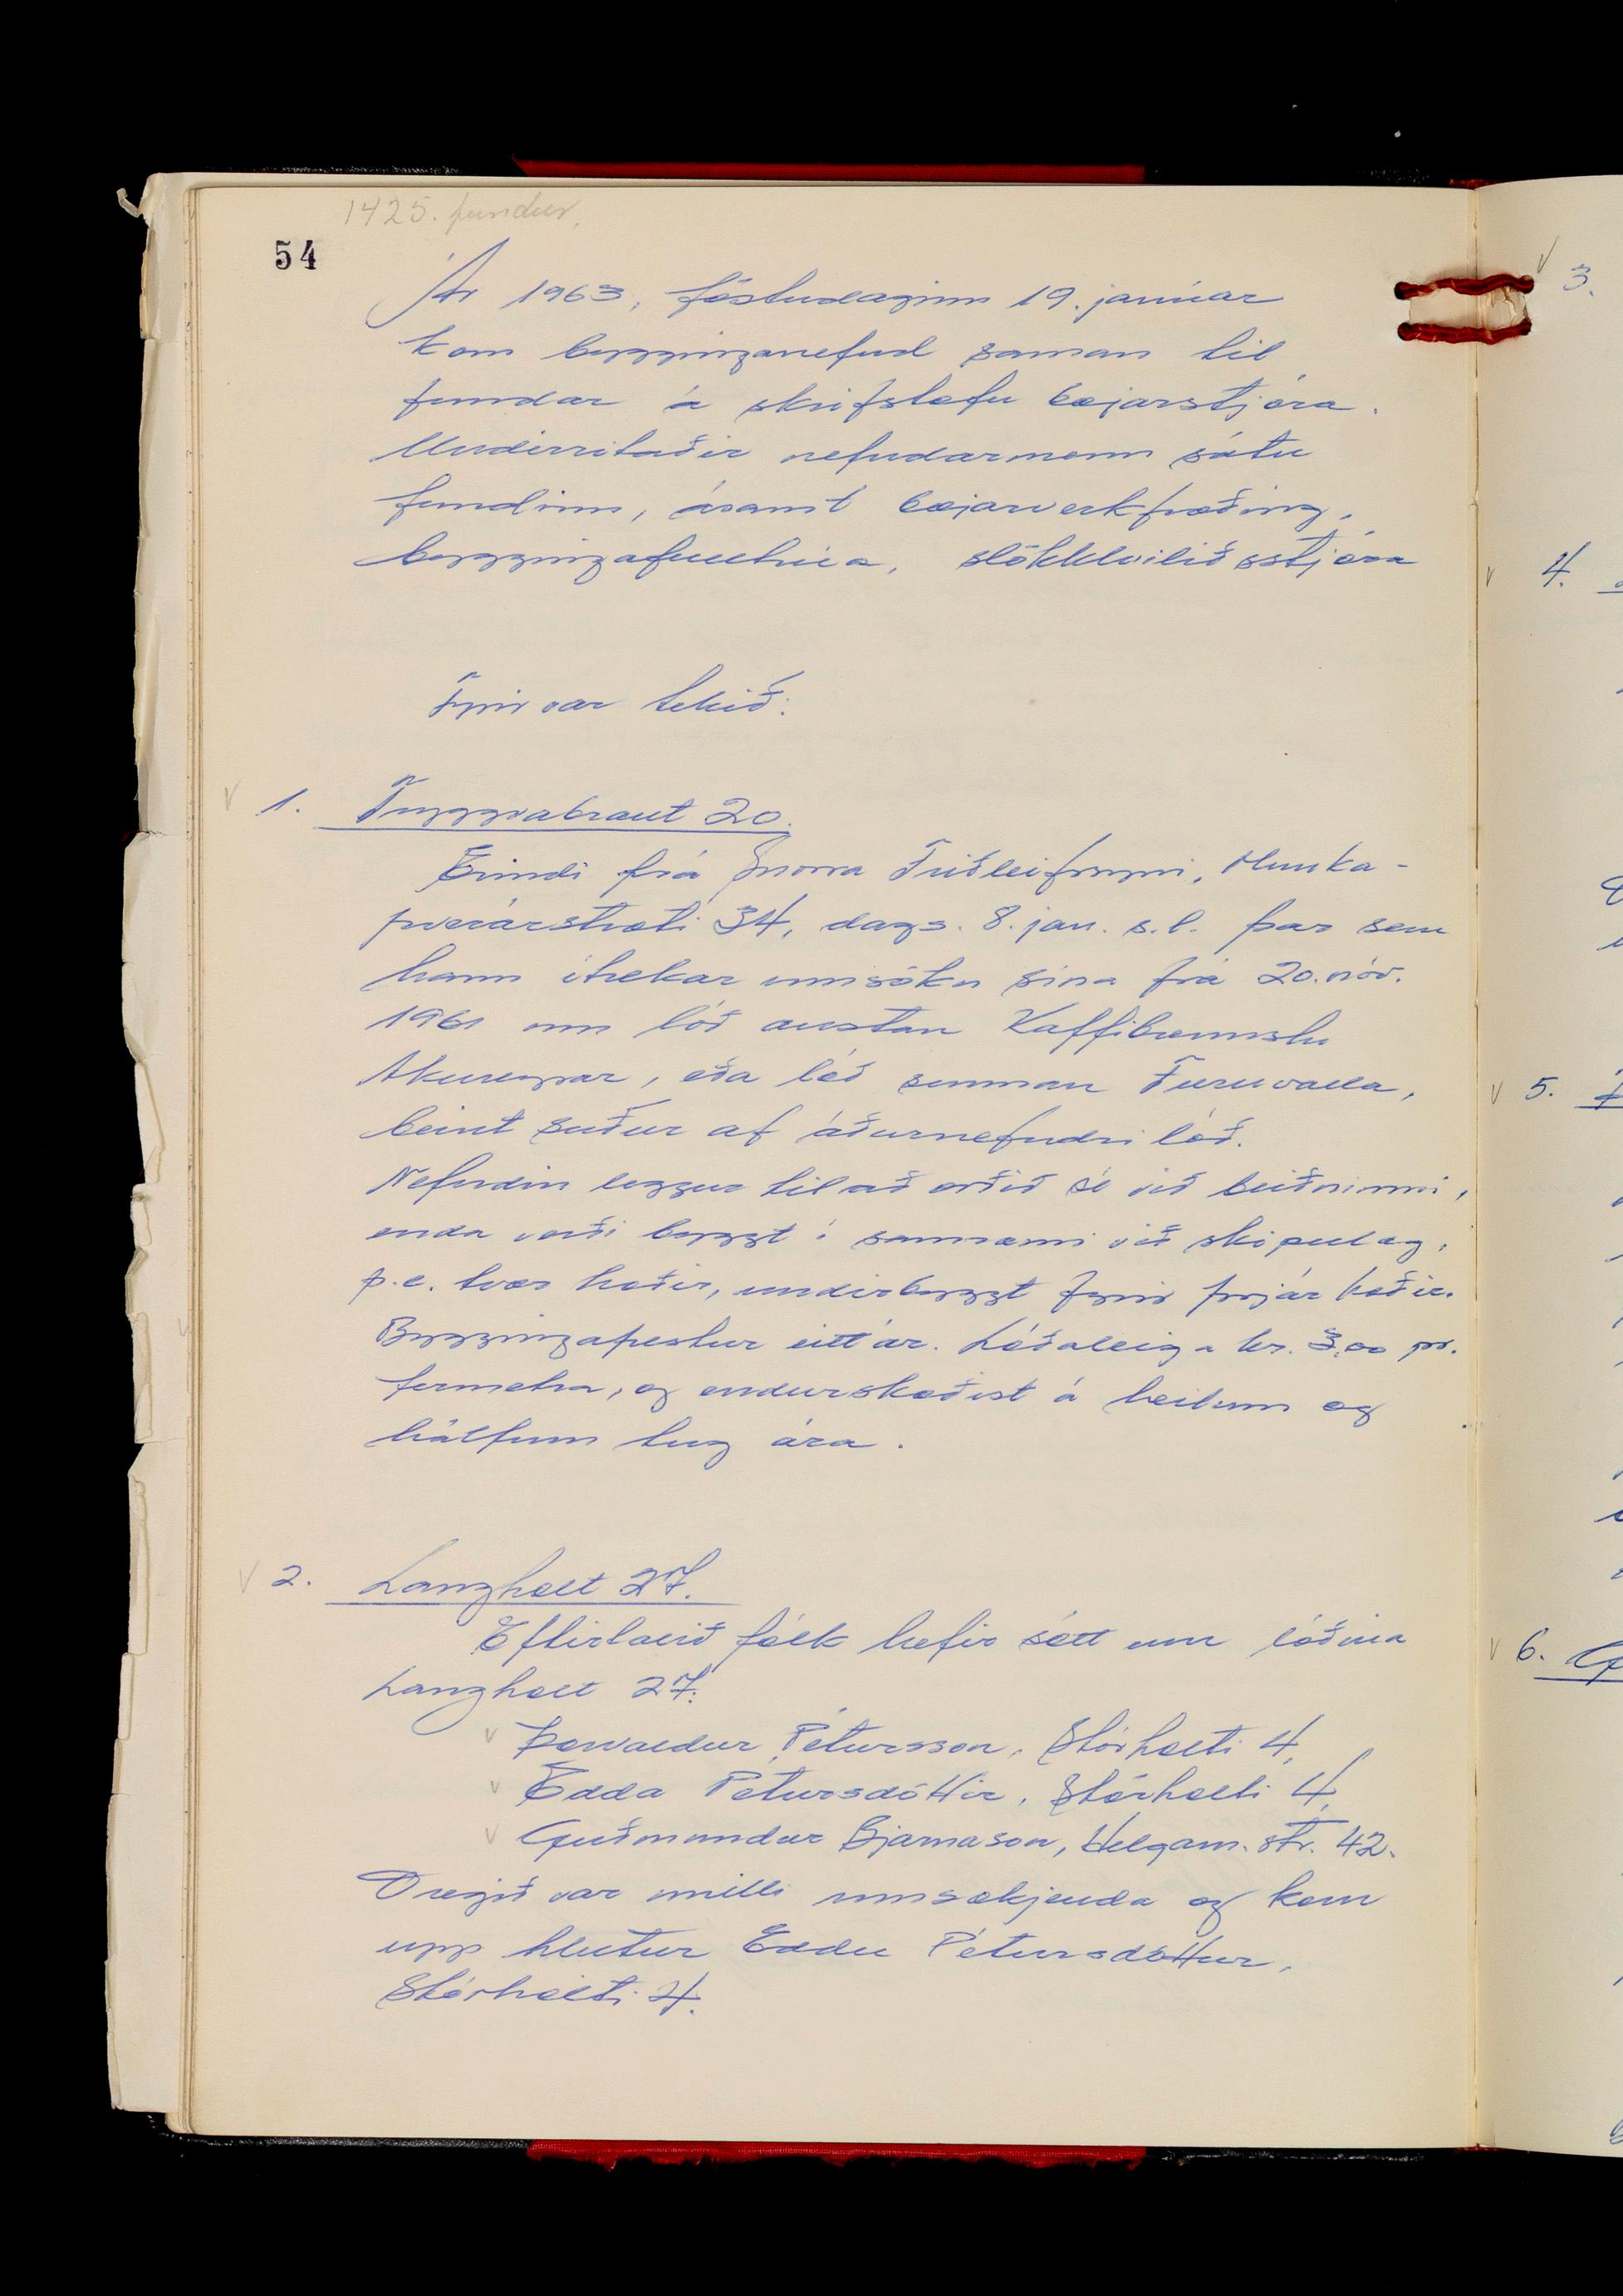 1425. fundur.
54
Ár 1963, föstudaginn 19. janúar
kom bygginganefnd saman til
fundar á skrifstofu bæjarstjóra.
Undirritaðir nefndarmenn sátu
fundinn, ásamt bæjarverkfræðing,
byggingafulltrúa, slökkviliðsstjóra
Fyrir var tekið:
1. Tryggvabraut 20.
Erindi frá Snorra Friðleifssyni, Munka-
þverárstræti 34, dags. 8. jan. s.l. þar sem
hann ítrekar umsókn sína frá 20. nóv.
1961 um lóð austan Kaffibrennslu
Akureyrar, eða lóð sunnan Furuvalla,
beint suður af áðurnefndri lóð.
Nefndin leggur til að orðið sé við beiðninni,
enda verði byggt í samræmi við skipulag,
þ.e. tvær hæðir, undirbyggt fyrir þrjár hæðir.
Byggingafrestur eitt ár. Lóðaleiga kr. 3,00 pr.
fermetra, og endurskoðist á heilum og
hálfum tug ára.
2. Langholt 27.
Eftirtalið fólk hefir sótt um lóðina
Langholt 27:
Þorvaldur Pétursson, Stórholti 4,
Edda Pétursdóttir, Stórholti 4,
Guðmundur Bjarnason, Helgam.str. 42.
Dregið var milli umsækjenda og kom
upp hlutur Eddu Pétursdóttur,
Stórholti 4.
3.
4.
5.
6.